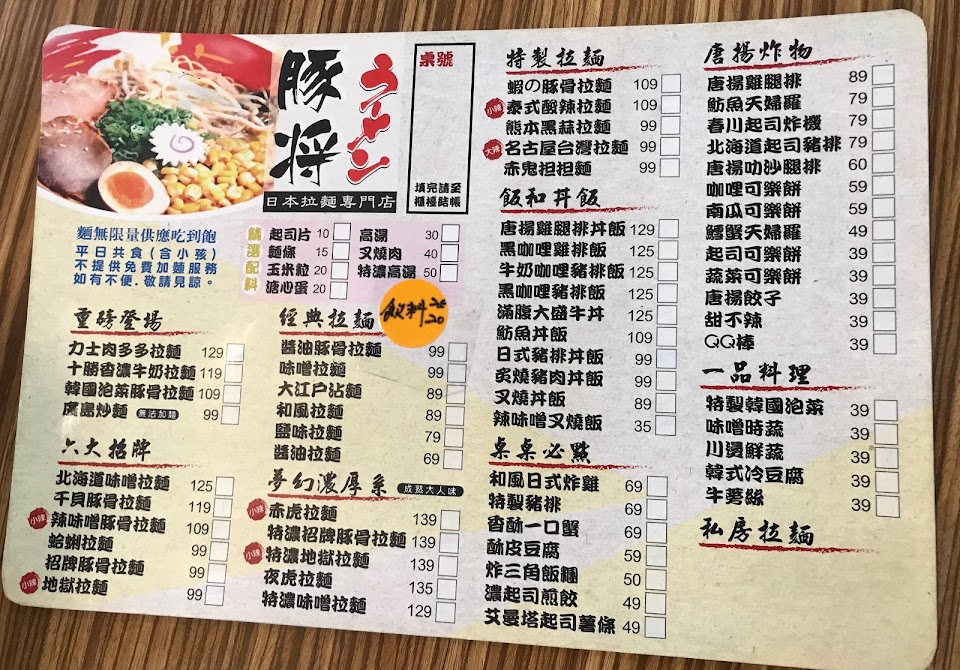 豚将
ラーメン
日本拉麵專門店
桌號
填完請至
櫃檯結帳
麵無限量供應吃到飽
平日共食(含小孩)
不提供免費加麵服務
如有不便.敬請見諒。
精選配料
起司片 10
麵條 15
玉米粒 20
溏心蛋 20
高湯 30
叉燒肉 40
特濃高湯 50
飲料 20
重磅登場
力士肉多多拉麵 129
十勝香濃牛奶拉麵 119
韓國泡菜豚骨拉麵 109
廣島炒麵 無法加麵 99
六大招牌
北海道味噌拉麵 125
干貝豚骨拉麵 119
小辣 辣味噌豚骨拉麵 109
蛤蜊拉麵 99
招牌豚骨拉麵 99
小辣 地獄拉麵 99
經典拉麵
醬油豚骨拉麵 99
味噌拉麵 99
大江戶沾麵 89
和風拉麵 89
鹽味拉麵 79
醬油拉麵 69
夢幻濃厚系 成熟大人味
小辣 赤虎拉麵 139
特濃招牌豚骨拉麵 139
小辣 特濃地獄拉麵 139
夜虎拉麵 135
特濃味噌拉麵 129
特製拉麵
蝦の豚骨拉麵 109
小辣 泰式酸辣拉麵 109
熊本黑蒜拉麵 99
大辣 名古屋台灣拉麵 99
赤鬼担担麵 99
飯和丼飯
唐揚雞腿排丼飯 129
黑咖哩雞排飯 125
牛奶咖哩豬排飯 125
黑咖哩豬排飯 125
滿腹大盛牛丼 125
魴魚丼飯 109
日式豬排丼飯 99
炙燒豬肉丼飯 99
叉燒丼飯 89
辣味噌叉燒飯 35
桌桌必點
和風日式炸雞 69
特製豬排 69
香酥一口蟹 69
酥皮豆腐 59
炸三角飯糰 50
濃起司煎餃 49
艾曼塔起司薯條 49
唐揚炸物
唐揚雞腿排 89
魴魚天婦羅 79
春川起司炸機 79
北海道起司豬排 79
唐揚叻沙腿排 60
咖哩可樂餅 59
南瓜可樂餅 59
鱈蟹天婦羅 49
起司可樂餅 39
蔬菜可樂餅 39
唐揚餃子 39
甜不辣 39
QQ棒 39
一品料理
特製韓國泡菜 39
味噌時蔬 39
川燙鮮蔬 39
韓式冷豆腐 39
牛蒡絲 39
私房拉麵